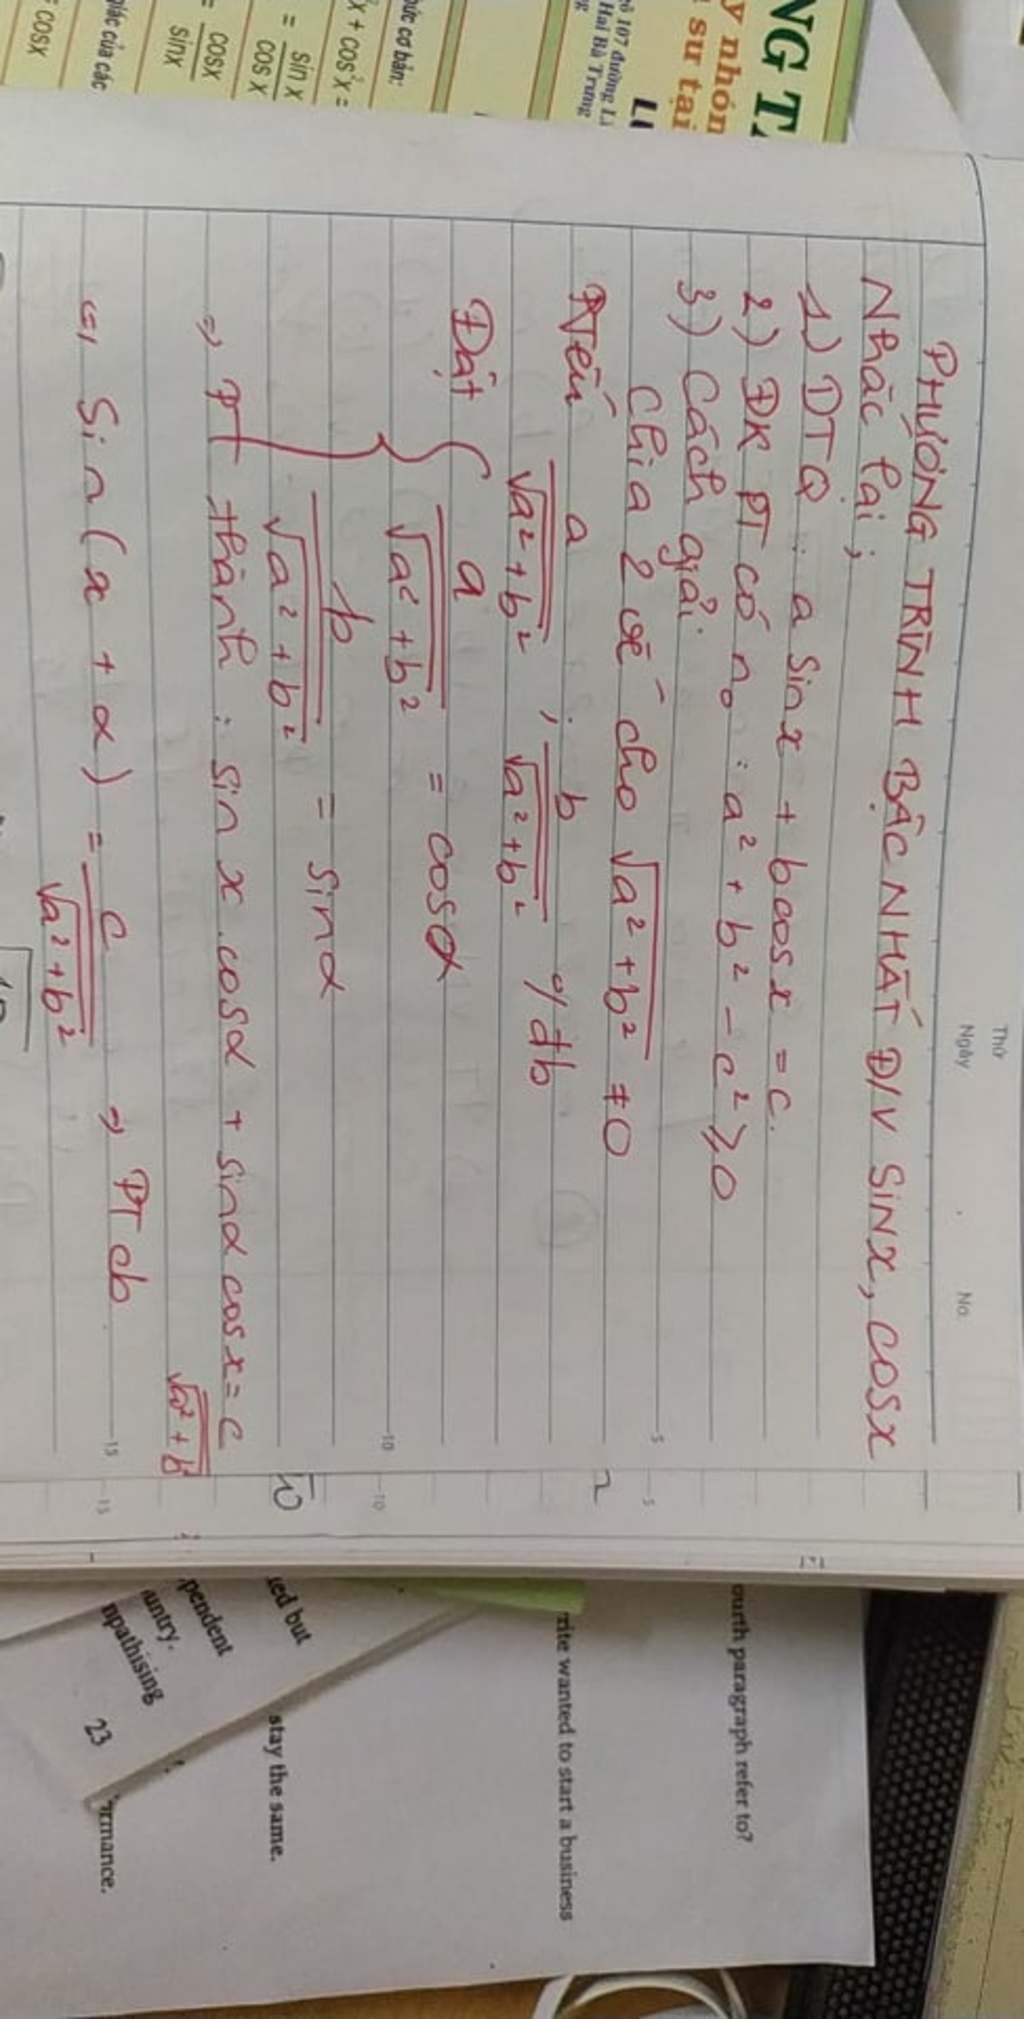 Thứ
Ngày
No.
PHƯƠNG TRÌNH BẬC NHẤT Đ/V SINX, COSX
Nhắc lại:
1) DTQ: a sinx + bcosx = c.
2) ĐK PT có n₀: a² + b² - c² ⩾ 0
3) Cách giải:
Chia 2 vế cho √a²+b² ≠ 0
Nếu a/√a²+b² ; b/√a²+b² % đb
Đặt { a/√a²+b² = cosα
b/√a²+b² = sinα
⇒ PT thành: sin x.cosα + sinα cosx = c/√a²+b²
⇔ Sin(x + α) = c/√a²+b² ⇒ PT cb.
5
10
15
5
10
15
NG T
y nhón
sư tại
LI
107 đường Lê
Hai Bà Trưng
ức cơ bản:
x + cos²x =
= sin x/cos x
= cosx/sinx
giác của các
cosx
ourth paragraph refer to?
rite wanted to start a business
stay the same.
ied but
pendent
untry.
npathising
23
rmance.